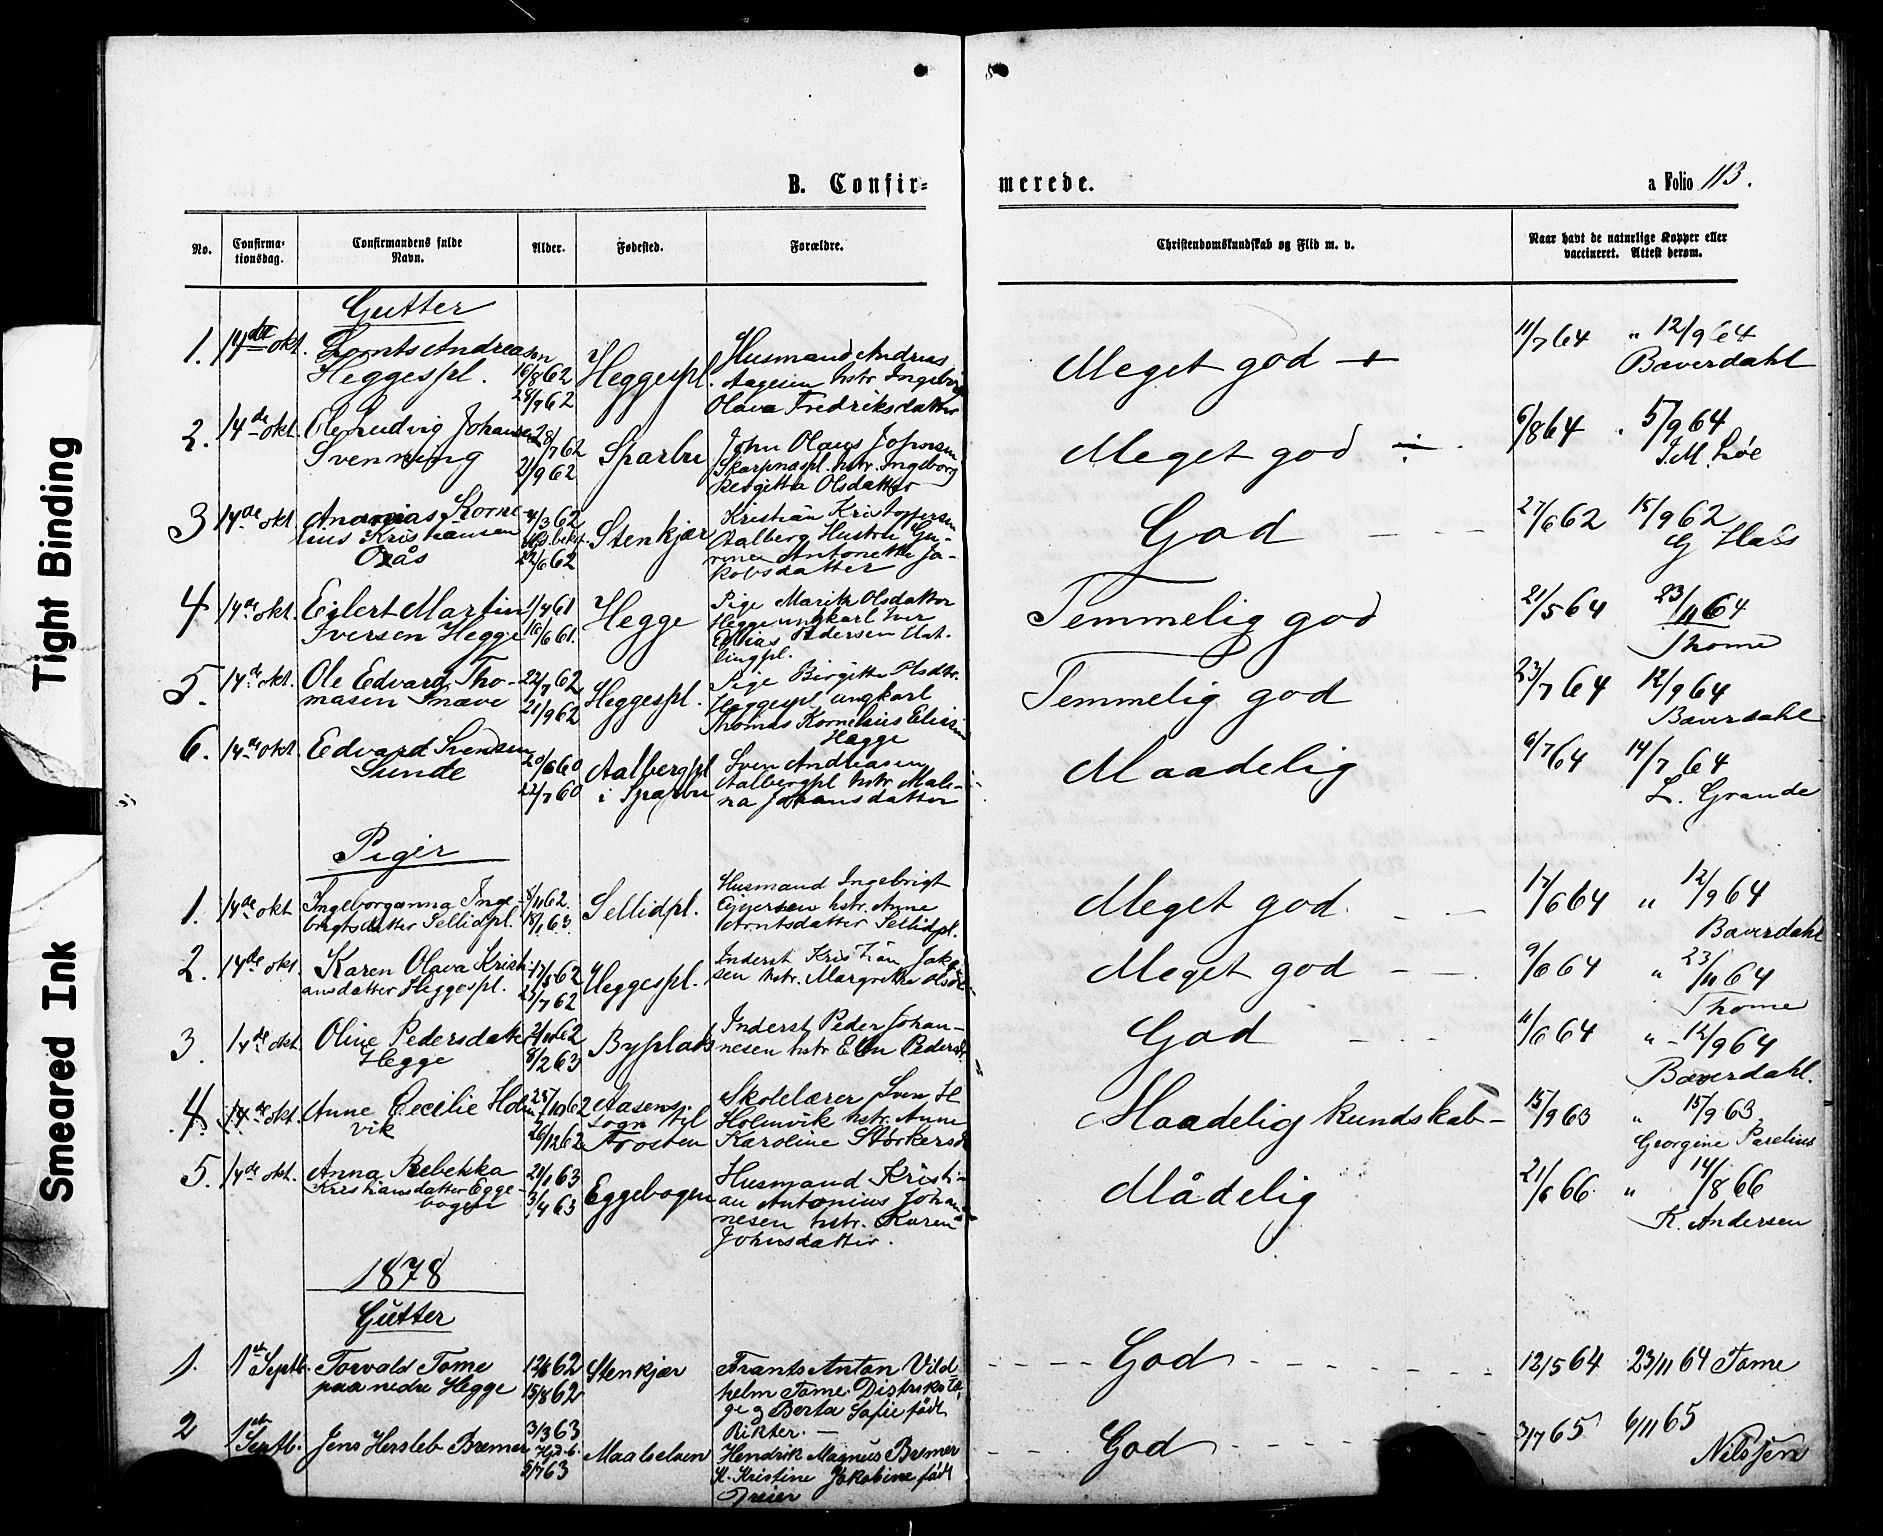 B. Confir=
merede.
a Folio 113.
No.
Confirma=
tionsdag.
Confirmandens fulde
Navn.
Alder.
Fødested.
Forældre.
Christendomskundskab og Flid m. v.
Naar havt de naturlige Kopper eller
vaccineret. Attest derom.
Gutter
1. 14de okt. Lornts Andreasen Heggespl. 16/8 62 28/9 62 Heggespl. Husmand Andreas
Aagesen hstr. Ingeborg
Olava Fredriksdatter
Meget god + 11/7 64 " 12/9 64
Baverdahl
2. 14de okt. Ole Ludvig Johansen
Svenning 28/7 62 21/9 62 Sparbu John Olaus Johnsen
Skarpnaspl. hstr. Ingeborg
Bergitta Olsdatter
Meget god ÷ 6/8 64 " 5/9 64
J. M. Løe
3 14de okt. Ananias Korne-
lius Kristiansen
Oxås 4/3 62 22/6 62 Stenkjær Kristian Kristoffersen
Aalberg Hustru Gu-
rine Antonette Ja-
kobsdatter
God 27/6 62 15/9 62
G Hass
4 14de okt. Eilert Martin
Iversen Hegge 1/4 61 16/6 61. Hegge Pige Marith Olsdatter
Hegge ungkarl Iver
Elias Pedersen
lingpl.
Temmelig god 21/5 64 23/11 64
Thome
5. 14de okt. Ole Edvard Tho-
masen Snæve 22/7 62 21/9 62 Heggespl. Pige Birgitte Olsdtr.
Heggespl ungkarl
Thomas Kornelius Eliasen
Hegge
Temmelig god 23/7 64 12/9 64
Baverdahl
6. 14de okt. Edvard Svendsen
Sunde 20/6 60 22/7 60 Aalbergpl
i Sparbu Sven Andreasen
Aalbergpl hstr Mali-
na Johansdatter
Maadelig 6/7 64 14/7 64
L. Grande
Piger
1. 14de okt Ingeborganna Inge-
brigtsdatter Sellidpl. 8/11 62. 18/1 63. Sellidpl. Husmand Ingebrigt
Ejnersen hstr. Anne
Arntsdatter Sellidpl.
Meget god. 17/6 64 " 12/9 64
Baverdahl
2. 14de okt. Karen Olava Kristi-
ansdatter Heggespl. 17/5 62 25/7 62 Heggespl. Inderst Kristian Jako-
sen hstr. Margrethe Olsdt
Meget god 9/6 64 " 23/11 64
Thome
3. 14de okt. Oline Pedersdatter
Hegge 21/11 62 8/2 63 Byplads Inderst Peder Johan-
nesen hstr Elen Pedersdt
God 11/6 64 " 12/9 64
Baverdahl.
4. 14de okt. Anne Cecilie Holm
vik 25/10 62 26/12 62 Aasens
Sogn
Frosten Skolelærer Sven H
Holmvik hstr. Anne
Karoline Storkersd
Maadelig kundskab- 15/9 63 " 15/9 63
Georgine Parelius
5. 14de okt. Anna Rebekka
Kristiansdatter Egge-
bogen 21/1 63 3/4 63 Eggebogen Husmand Kristi-
an Antonius Johan-
nesen hstr. Karen
Johnsdatter.
Mådelig 21/6 66 " 14/8 66
K. Andersen
1878
Gutter
1. 1ste Septb. Torvald Tome
paa nedre Hegge 12/6 62 15/8 62 Stenkjær Frants Anton Vild-
helm Tome. Distriktslæ-
ge g Berta Sofie født
Rikter.
God 12/5 64 23/11 64 Tome
2 1ste Septb. Jens Hersleb Bremer 3/3 63 5/7 63 Maalselven Hendrik Magnus Bremer
K. Kristine Jakobine født
Dreier
God 3/7 65 6/11 65
Nilssen
Tight Binding
Smeared Ink